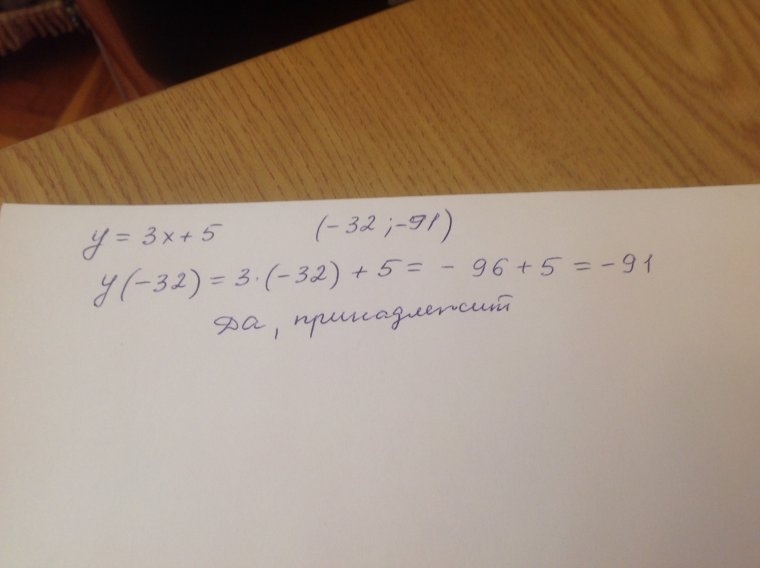 y = 3x + 5 (-32 ; -91)
y(-32) = 3·(-32) + 5 = - 96 + 5 = -91
Да, принадлежит